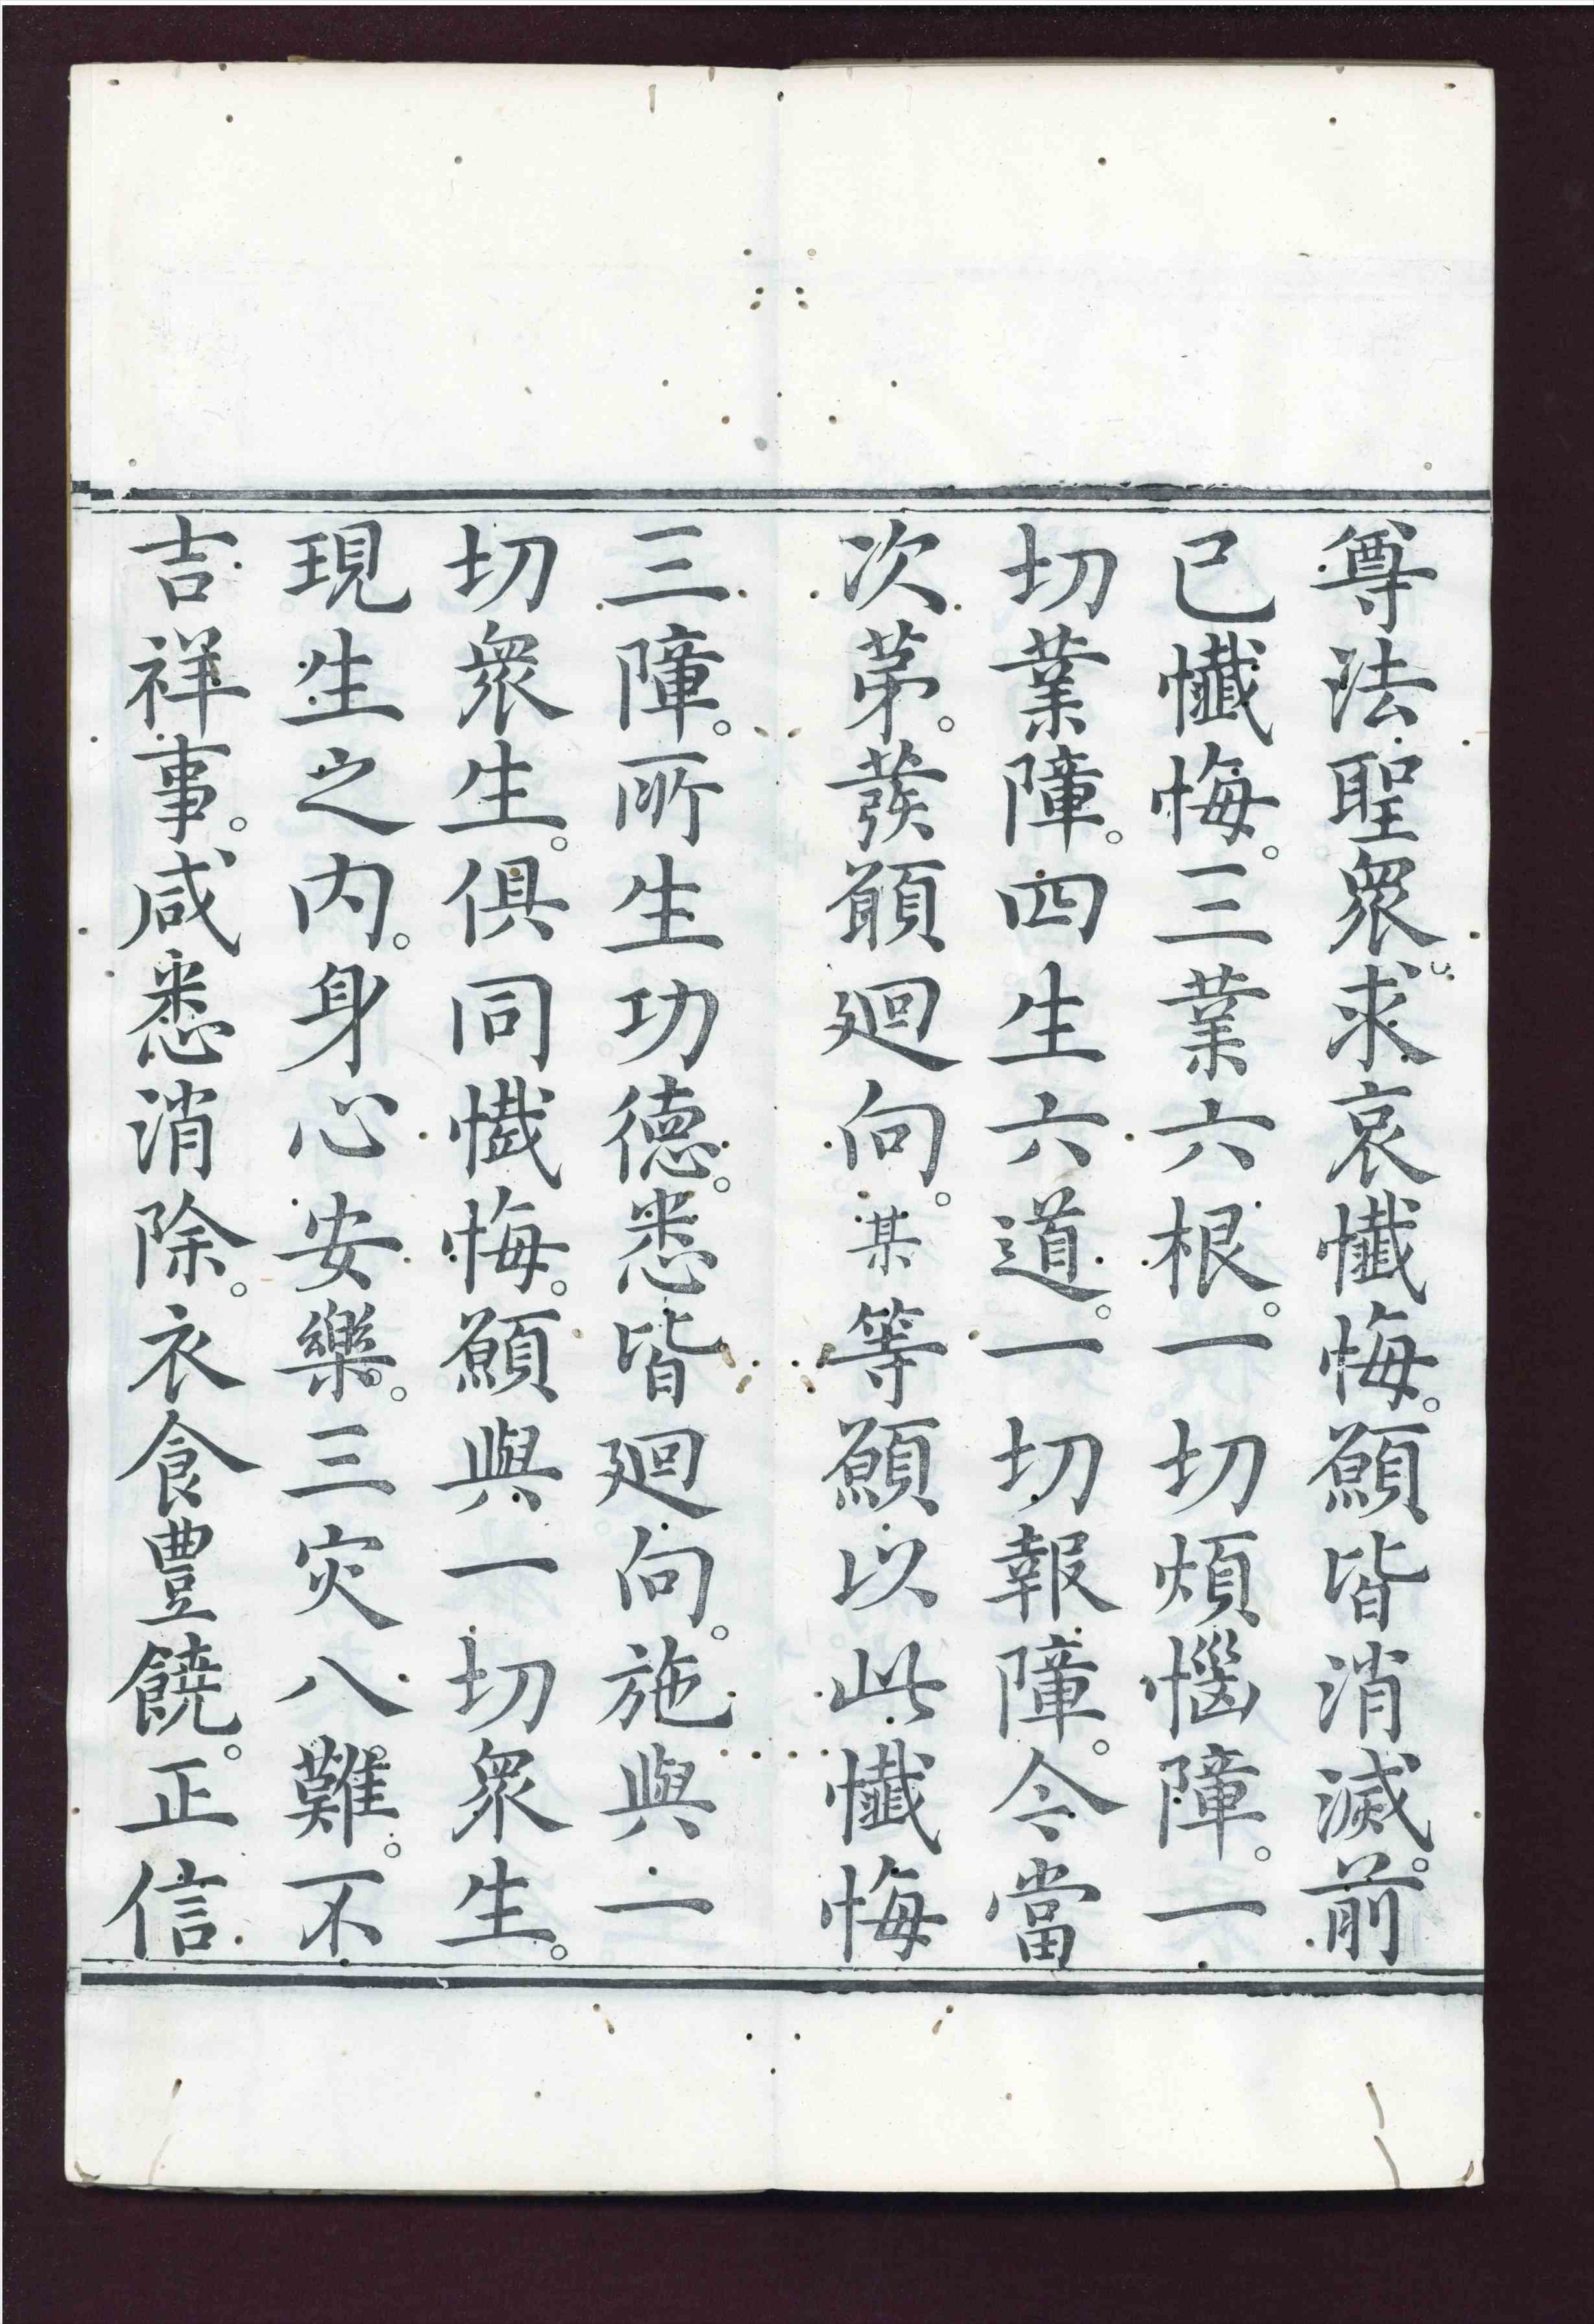 尊法聖衆。求哀懴悔。願皆消滅。前
已懴悔。三業六根。一切煩惱障。一
切業障。四生六道。一切報障。今當
次苐。發願廻向。某等願以此懴悔
三障。所生功德。悉皆廻向。施與一
切衆生。俱同懴悔。願與一切衆生。
現生之内。身心安樂。三灾八難。不
吉祥事。咸悉消除。衣食豊饒。正信